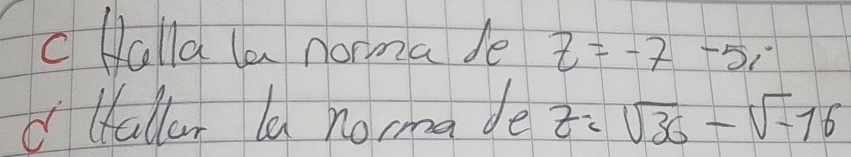 c Halla la norma de z = -7 -5i
d Hallar la norma de z = √36 - √-16